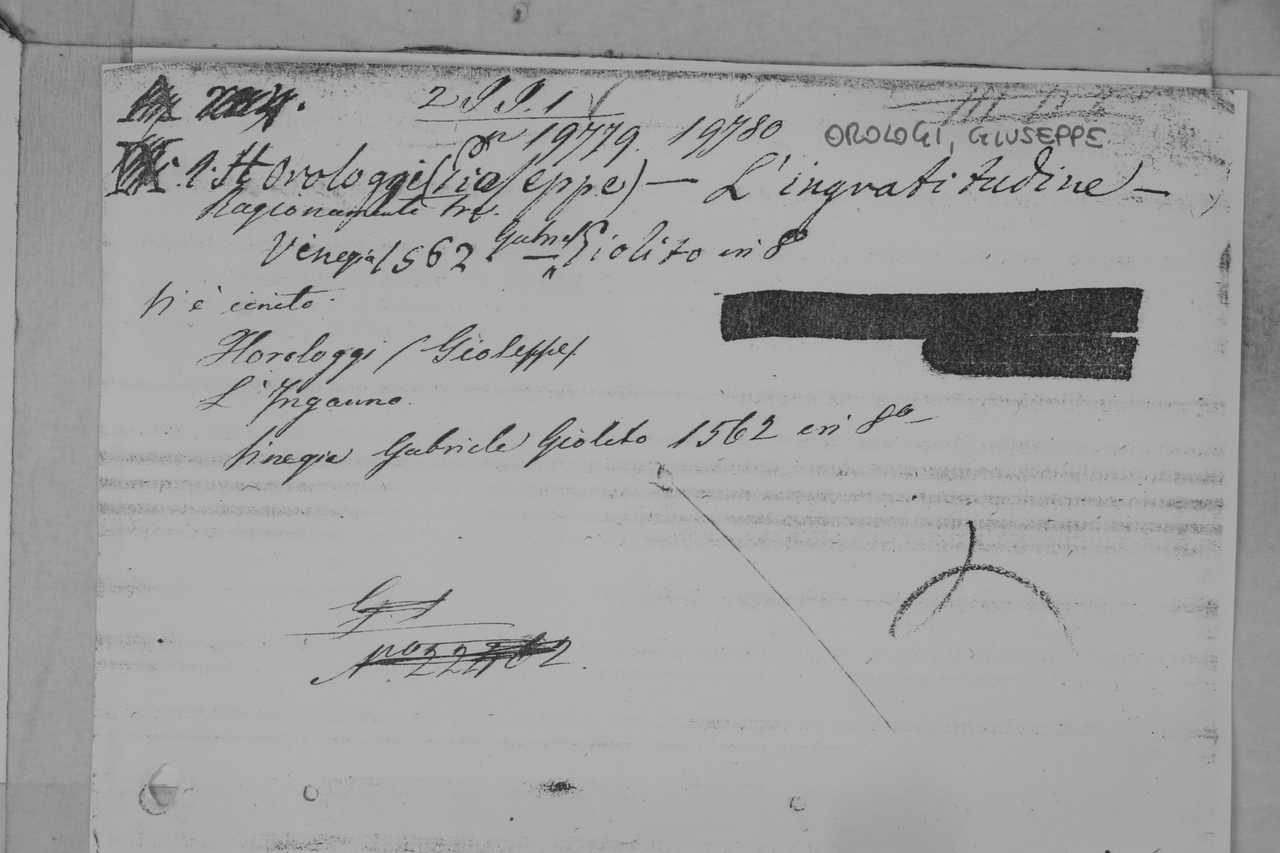 2 I I. 1
nº 19779. 19780
OROLOGI, GIUSEPPE
Horologgi (Gioseppe) — L'ingratitudine —
Ragionamenti tre.
Venegia 1562 Gabriel Giolito in 8º
Vi è unito.
Horologgi (Gioseppe)
L'Inganno.
Vinegia Gabriele Giolito 1562 in 8º